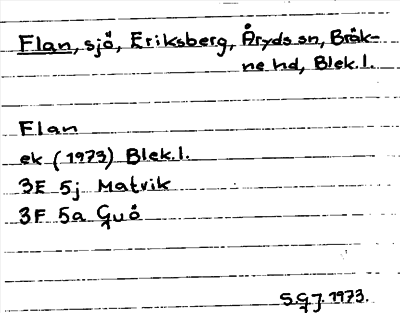 Flan, sjö, Eriksberg, Åryds sn, Bräk-
ne hd, Blek.l.
Flan
ek (1973) Blek.l.
3E 5j Matvik
3F 5a Guö
S.G.J. 1973.